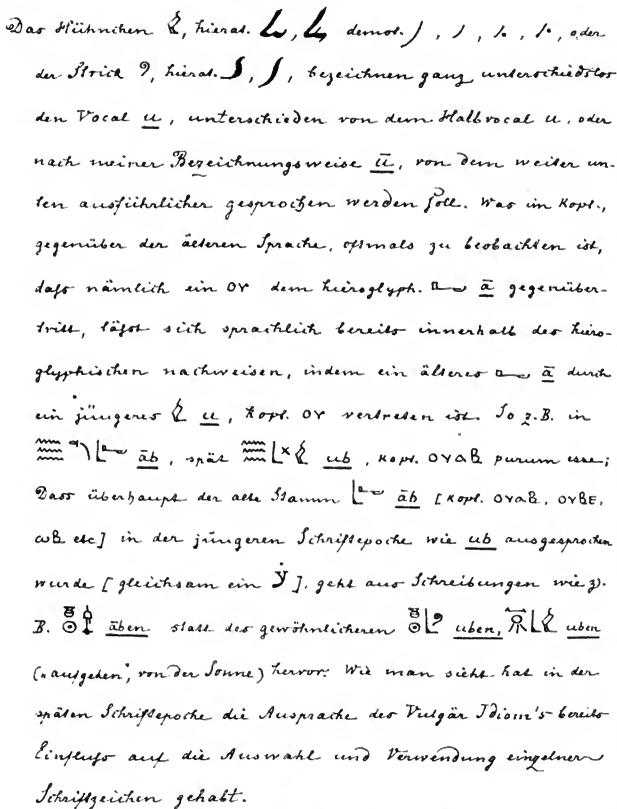 Das Hühnchen 𓅱, hierat. , demot. ) , ) , /. , /. , oder
der Strick 𓏲, hierat. , bezeichnen ganz unterschiedslos
den Vocal u, unterschieden von dem Halbvocal u. oder
nach meiner Bezeichnungsweise ū, von dem weiter un-
ten ausführlicher gesprochen werden soll. Was im Kopt.,
gegenüber der älteren Sprache, oftmals zu beobachten ist,
daſs nämlich ein ⲟⲩ dem hieroglyph. 𓂝 ā gegenüber-
tritt, läſst sich sprachlich bereits innerhalb des hiero-
glyphischen nachweisen, indem ein älteres 𓂝 ā durch
ein jüngeres 𓅱 u, Kopt. ⲟⲩ vertreten ist. So z.B. in
𓈗 𓃀𓂝 āb, spät 𓈗𓃀𓏴𓅱 ub, Kopt. ⲟⲩⲁⲃ purum esse;
Dass überhaupt der alte Stamm 𓃀𓂝 āb [Kopt. ⲟⲩⲁⲃ, ⲟⲩⲃⲉ,
ⲱⲃ etc] in der jüngeren Schriftepoche wie ub ausgesprochen
wurde [gleichsam ein ẏ], geht aus Schreibungen wie z.
B. āben statt des gewöhnlicheren uben, uben
(„aufgehen", von der Sonne) hervor. Wie man sieht hat in der
späten Schriftepoche die Aussprache des Vulgär Idiom's bereits
Einfluſs auf die Auswahl und Verwendung einzelner
Schriftzeichen gehabt.